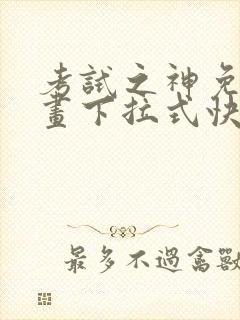 考試之神免
畫下拉式快
最多不過禽獸